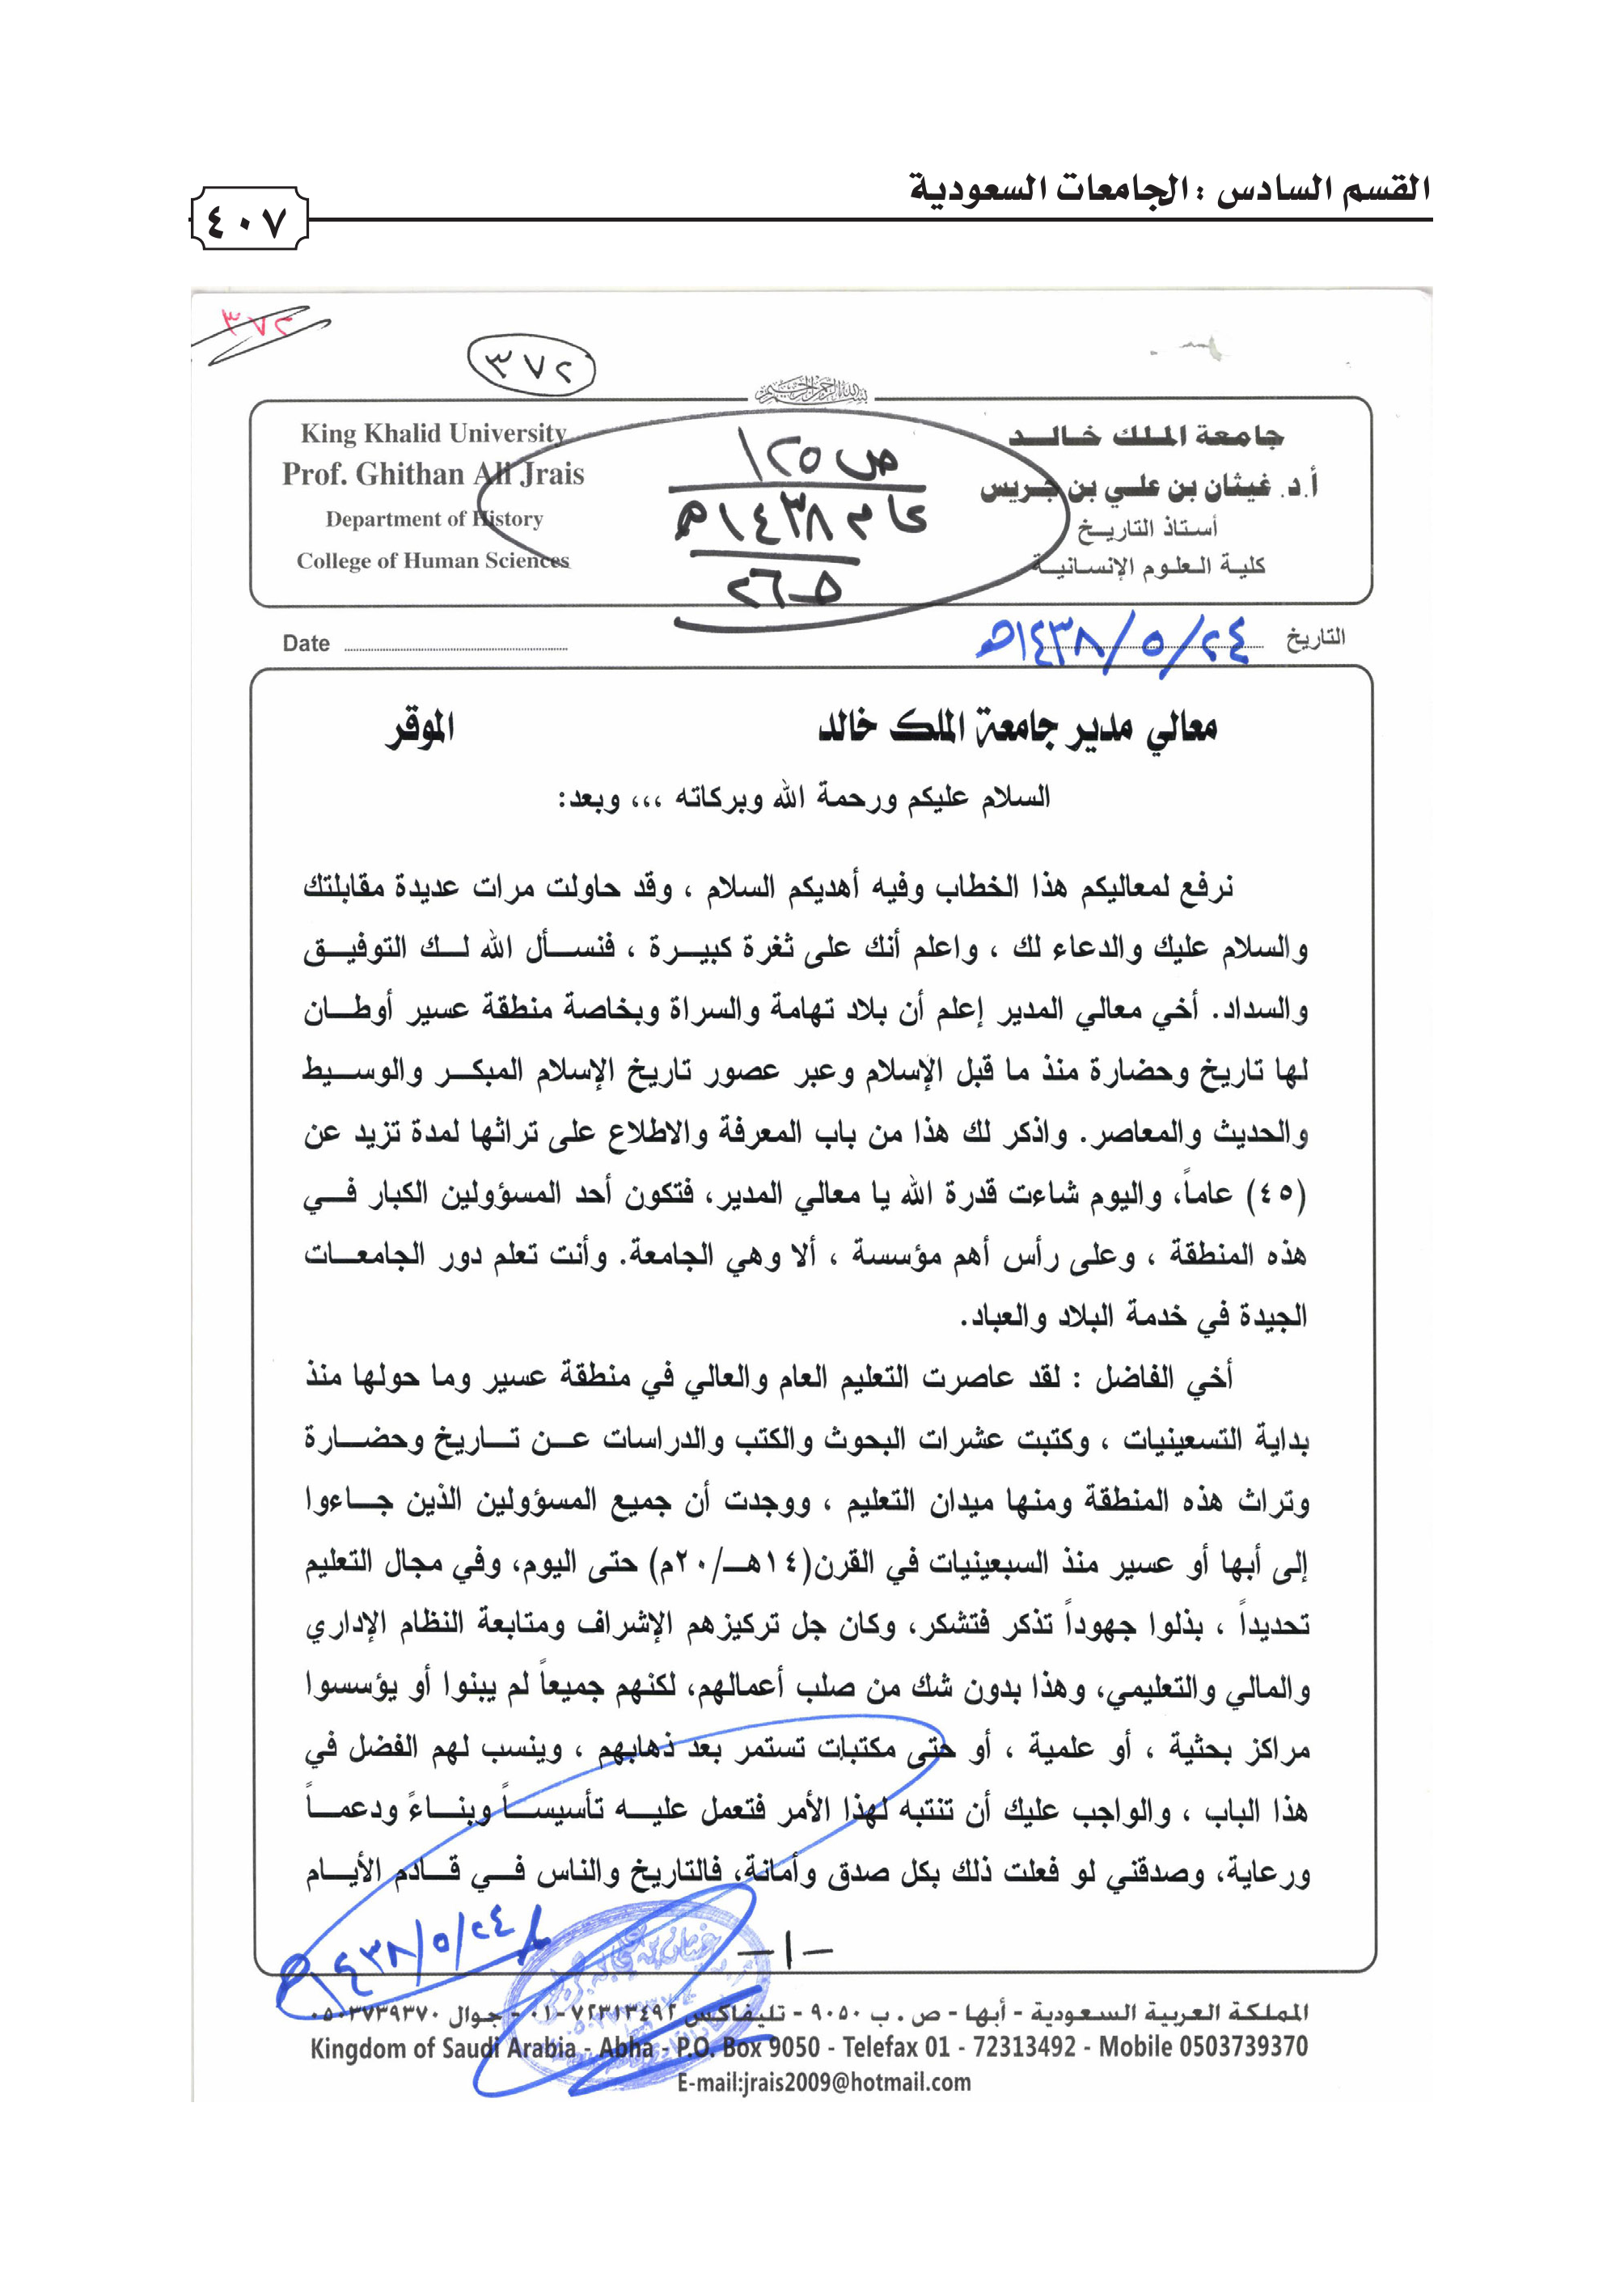 القسم السادس : الجامعات السعودية
٤٠٧
٣٧٢
٣٧٢
جامعة الملك خالد
أ.د. غيثان بن علي بن جريس
أستاذ التاريخ
كلية العلوم الإنسانية
King Khalid University
Prof. Ghithan Ali Jrais
Department of History
College of Human Sciences
ص ١٢٥
عام ١٤٣٨هـ
التاريخ ٢٤/٥/١٤٣٨هـ
Date
معالي مدير جامعة الملك خالد الموقر
السلام عليكم ورحمة الله وبركاته ،،، وبعد:
نرفع لمعاليكم هذا الخطاب وفيه أهديكم السلام ، وقد حاولت مرات عديدة مقابلتك
والسلام عليك والدعاء لك ، واعلم أنك على ثغرة كبيرة ، فنسأل الله لك التوفيق
والسداد. أخي معالي المدير إعلم أن بلاد تهامة والسراة وبخاصة منطقة عسير أوطان
لها تاريخ وحضارة منذ ما قبل الإسلام وعبر عصور تاريخ الإسلام المبكر والوسيط
والحديث والمعاصر. واذكر لك هذا من باب المعرفة والاطلاع على تراثها لمدة تزيد عن
(٤٥) عاماً، واليوم شاءت قدرة الله يا معالي المدير، فتكون أحد المسؤولين الكبار في
هذه المنطقة ، وعلى رأس أهم مؤسسة ، ألا وهي الجامعة. وأنت تعلم دور الجامعات
الجيدة في خدمة البلاد والعباد.
أخي الفاضل : لقد عاصرت التعليم العام والعالي في منطقة عسير وما حولها منذ
بداية التسعينيات ، وكتبت عشرات البحوث والكتب والدراسات عن تاريخ وحضارة
وتراث هذه المنطقة ومنها ميدان التعليم ، ووجدت أن جميع المسؤولين الذين جاءوا
إلى أبها أو عسير منذ السبعينيات في القرن(١٤هـ/٢٠م) حتى اليوم، وفي مجال التعليم
تحديداً ، بذلوا جهوداً تذكر فتشكر، وكان جل تركيزهم الإشراف ومتابعة النظام الإداري
والمالي والتعليمي، وهذا بدون شك من صلب أعمالهم، لكنهم جميعاً لم يبنوا أو يؤسسوا
مراكز بحثية ، أو علمية ، أو حتى مكتبات تستمر بعد ذهابهم ، وينسب لهم الفضل في
هذا الباب ، والواجب عليك أن تنتبه لهذا الأمر فتعمل عليه تأسيساً وبناءً ودعماً
ورعاية، وصدقني لو فعلت ذلك بكل صدق وأمانة، فالتاريخ والناس في قادم الأيام
-١-
٢٤/٥/١٤٣٨هـ
المملكة العربية السعودية - أبها - ص . ب ٩٠٥٠ - تليفاكس ٧٢٣١٣٤٩٢-٠١ - جوال ٠٥٠٣٧٣٩٣٧٠
Kingdom of Saudi Arabia - Abha - P.O. Box 9050 - Telefax 01 - 72313492 - Mobile 0503739370
E-mail:jrais2009@hotmail.com